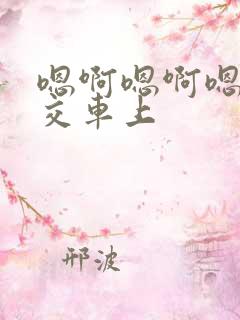 嗯啊嗯啊嗯
交車上
邢波